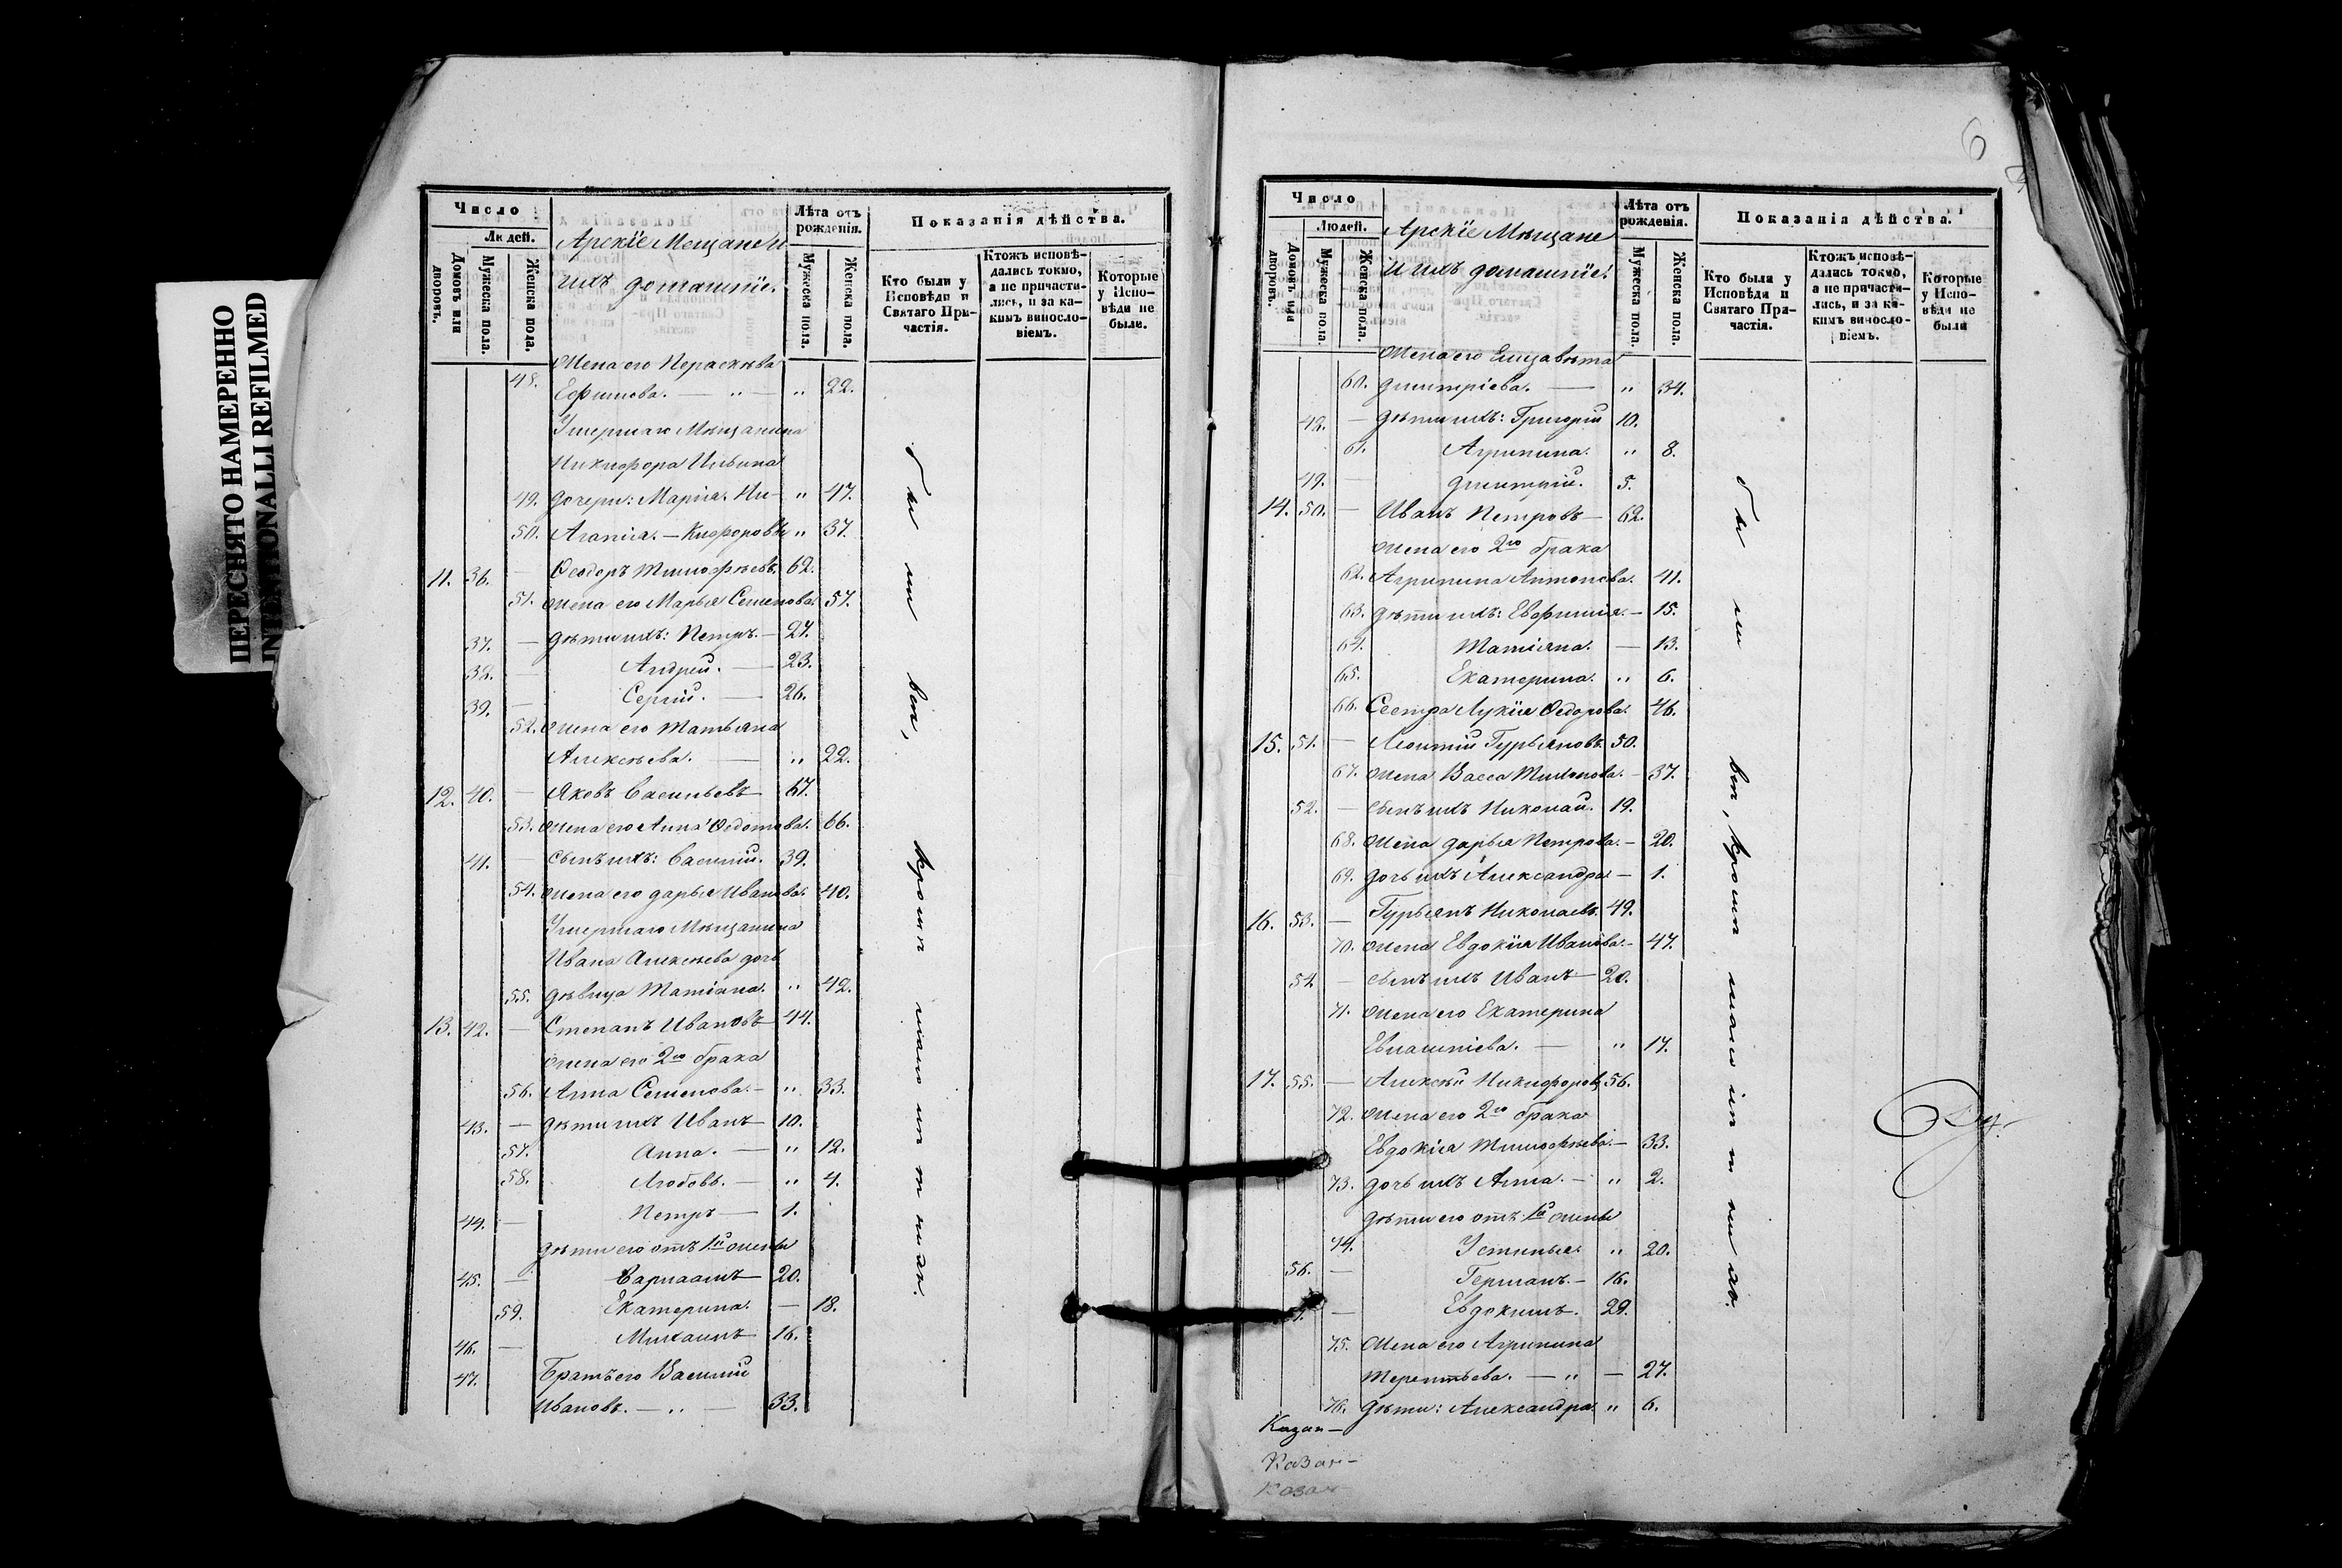 ПЕРЕСНЯТО НАМЕРЕННО
INTENTIONALLI REFILMED
Число
Людей.
Домовъ или дворовъ.
Мужеска пола.
Женска пола.
Арскіе Мещане и
ихъ домашніе.
Лѣта отъ рожденія.
Мужеска пола.
Женска пола.
Показанія дѣйства.
Кто были у Исповѣди и Святаго Причастія.
Ктожъ исповѣдались токмо, а не причастились, и за какимъ винословіемъ.
Которые у Исповѣди не были.
Жена его Пераскѣва
48. Ефимова. — „ — „ 22.
Умершаго Мѣщанина
Никифора Ильина
49. дочери: Марія. Ни- „ 47.
50. Агапія. — кифоровы „ 37.
11. 36. — Ѳеодоръ Тимофѣевъ. 62.
51. Жена его Марья Семенова. 57.
37. — дѣти ихъ: Петръ. — 27.
38. — Андрей. — 23.
39. — Сергій. — 26.
52. Жена его Татьяна
Алексѣева. — „ 22.
12. 40. — Яковъ Васильевъ — 67.
53. Жена его Анна Ѳедотова. 66.
41. — сынъ ихъ: Василій. 39.
54. Жена его Дарья Иванова. 40.
Умершаго Мѣщанина
Ивана Алексѣева дочь
55. дѣвица Татіана. „ 42.
13. 42. — Степанъ Ивановъ 44.
Жена его 2го брака
56. Анна Семенова. — „ 33.
43. — дѣти ихъ Иванъ — 10.
57. Анна. — „ 12.
58. Любовь. — „ 4.
44. — Петръ — 1.
дѣти его отъ 1й жены
45. — Варлаамъ — 20.
59. Екатерина. — 18.
46. — Михаилъ 16.
47. Братъ его Василій
Ивановъ. — „ — 33.
6
Число
Людей.
Домовъ или дворовъ.
Мужеска пола.
Женска пола.
Арскіе Мѣщане
и ихъ домашніе.
Лѣта отъ рожденія.
Мужеска пола.
Женска пола.
Показанія дѣйства.
Кто были у Исповѣди и Святаго Причастія.
Ктожъ исповѣдались токмо, а не причастились, и за какимъ винословіемъ.
Которые у Исповѣди не были
Жена его Елизавѣта
60. Дмитріева. — „ 34.
42. — дѣти ихъ: Григорій 10.
61. Агрипина. „ 8.
49. — Дмитрій. 5.
14. 50. — Иванъ Петровъ — 62.
Жена его 2го брака
62. Агрипина Антонова. 41.
63. дѣти ихъ: Евфимія. — 15.
64. Татіана. — 13.
65. Екатерина. „ 6.
66. Сестра Лукія Ѳедорова. 46.
15. 51. — Леонтій Гурьяновъ. 50.
67. Жена Васса Тихонова. — 37.
52. — сынъ ихъ Николай. 19.
68. Жена Дарья Петрова. — 20.
69. дочь ихъ Александра — 1.
16. 53. — Гурьянъ Николаевъ. 49.
70. Жена Евдокія Иванова. — 47.
54 — сынъ ихъ Иванъ — 20.
71. Жена его Екатерина
Евлампіева. — „ 17.
17. 55. — Алексѣй Никифоровъ 56.
72. Жена его 2го брака
Евдокія Тимофѣева. — 33.
73. дочь ихъ Анна. — „ 2.
дѣти его отъ 1й жены
74. Устинья. „ 20.
56. — Германъ. — 16.
— Евдокимъ. 29.
75. Жена его Агрипина
Терентьева. — „ — 27.
76. дѣти: Александра. „ 6.
Казан—
Казан—
Казан